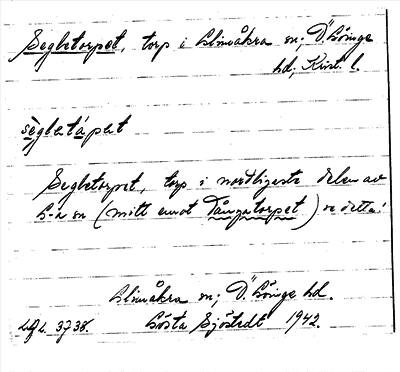 Segletorpet, torp i Glimåkra sn; Ö. Göinge
hd; Krist. l.
sègletápet
Segletorpet, torp i nordligaste delen av
G-a sn (mitt emot Tångatorpet) se detta!
Glimåkra sn; Ö. Göinge hd.
Gösta Sjöstedt 1942.